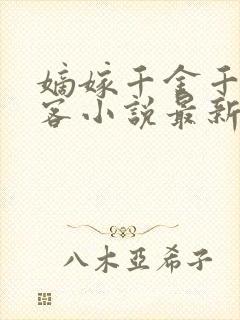 嫡嫁千金千
客小說最新
八木亞希子